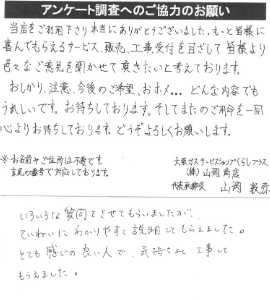 アンケート調査へのご協力のお願い
当店をご利用下さり本当にありがとうございました。もっと皆様に
喜んでもらえるサービス、販売、工事受付を目ざして皆様より
色々なご意見を聞かせて頂きたいと考えております。
おしかり、注意、今後のご希望、おホメ... どんな内容でも
うれしいです。お待ちしております。そしてまたのご用命を一同
心よりお待ちしております。どうぞよろしくお願いします。
※お名前やご住所は不要です。
大阪ガスサービスショップくらしプラス
(株)山岡商店
代表取締役 山岡
いろいろな質問をさせてもらいましたが、
ていねいにわかりやすく説明してもらえました。
とても感じの良い人で、気持ちよく工事して
もらえました。